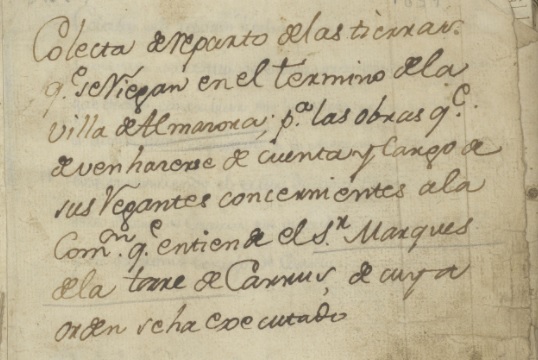 Colecta de reparto de las tierras
q.e se Riegan en el termino de la
villa de Almarora; p.a las obras q.e
deven hacerse de cuenta y Cargo de
sus Regantes concernientes a la
Com.on q.e entiende el S.r Marques
de la torre de Carrus, de cuya
orden se ha executado